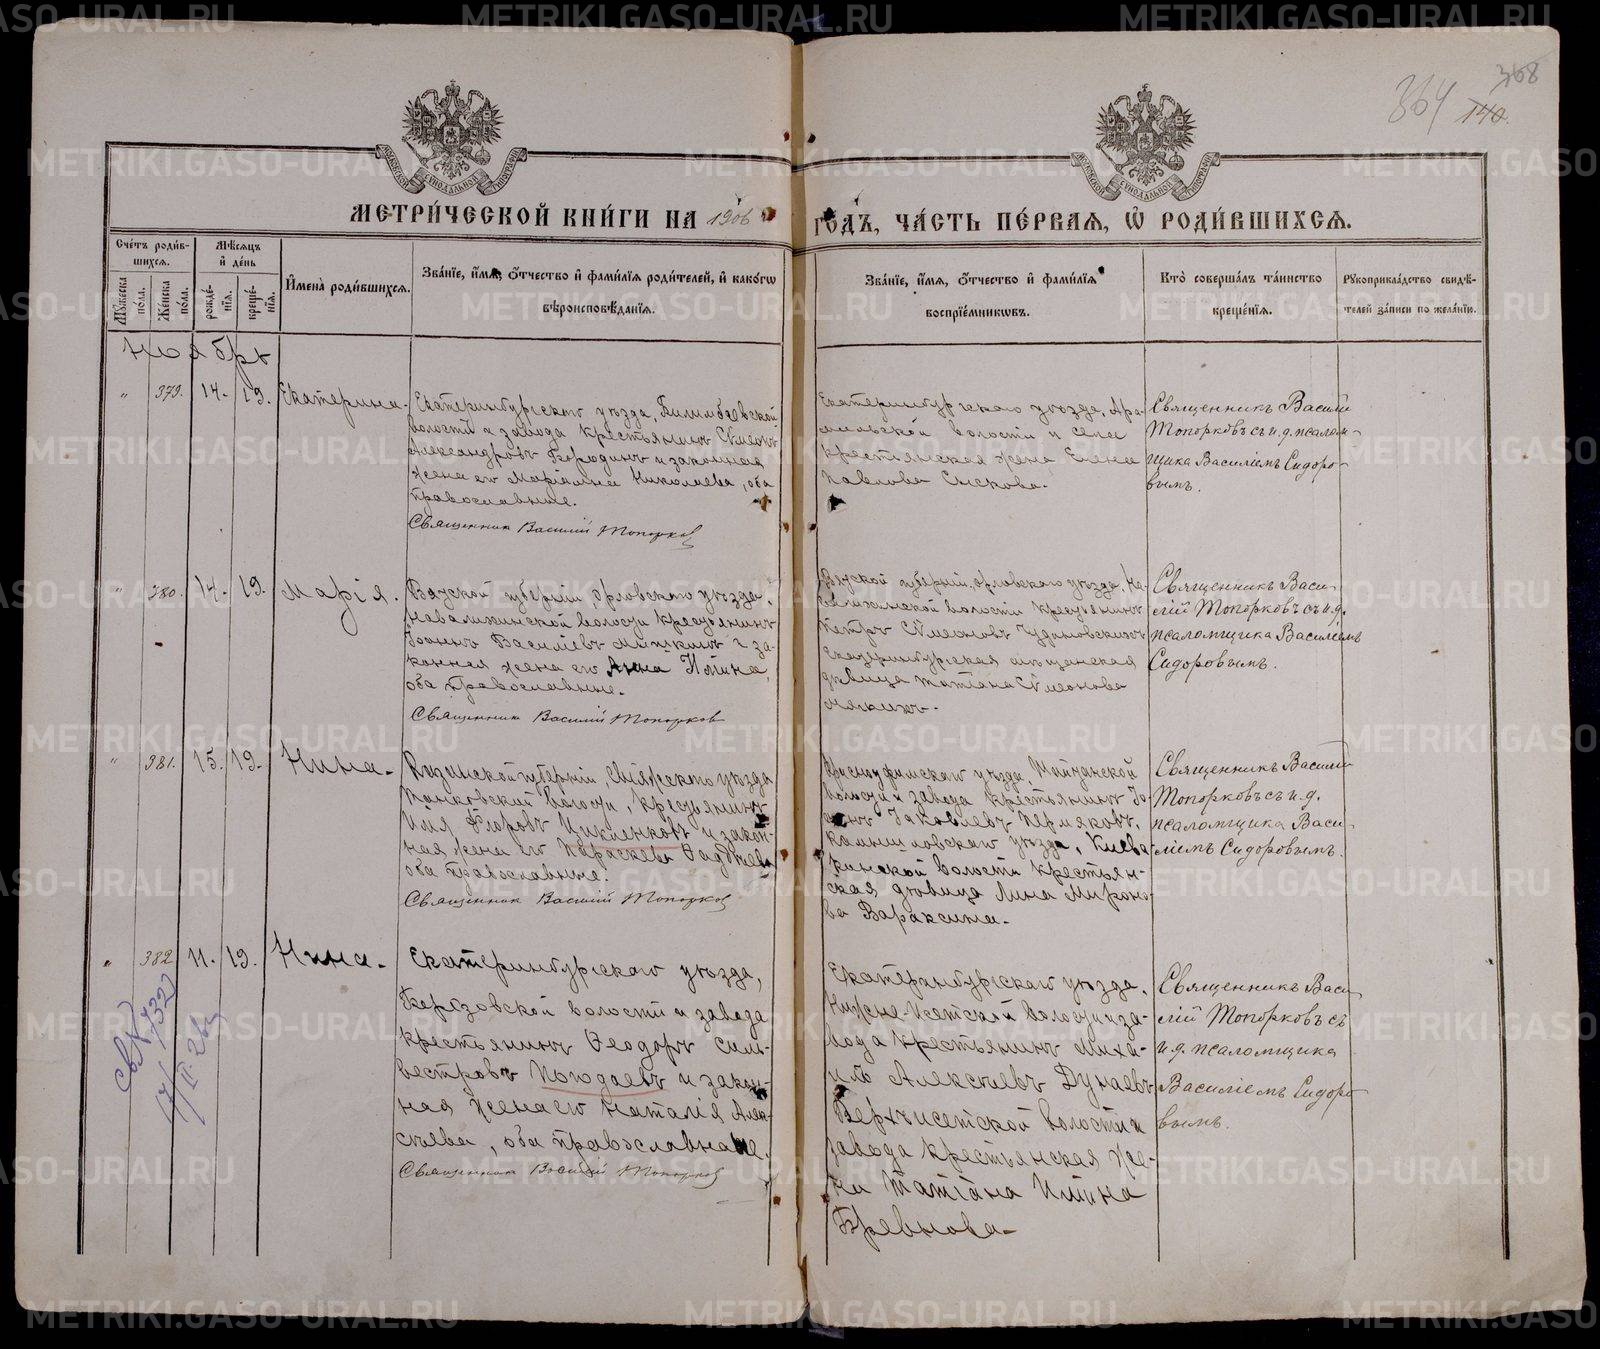 368
364 140.
МОСКОВСКОЙ СѴНОДАЛЬНОЙ ТИПОГРАФІИ
МОСКОВСКОЙ СѴНОДАЛЬНОЙ ТИПОГРАФІИ
МЕТРИ́ЧЕСКОЙ КНИ́ГИ НА 1906 ГО́ДЪ, ЧА́СТЬ ПЕ́РВАЯ, Ѡ҆ РОДИ́ВШИХСЯ.
Сче́тъ роди́в-
шихся.
Мꙋ́жеска по́ла.
Же́нска по́ла.
Мѣ́сяцъ
и҆ де́нь
рожде́-
нїѧ.
креще́-
нїѧ.
И҆мена̀ роди́вшихся.
Зва́нїе, и҆́мя, ѻ҆́тчество и҆ фами́лїя роди́телей, и҆ како́гѡ
вѣроисповѣ́данїя.
Зва́нїе, и҆́мя, ѻ҆́тчество и҆ фами́лїя
воспрїе́мникѡвъ.
Кто̀ соверша́лъ та́инство
креще́нїя.
Рꙋкоприкла́дство свидѣ́-
телей за́писи по жела́нїю.
Ноябрь
" 379. 14. 19. Екатерина.
Екатеринбургскаго уѣзда, Билимбаевской
волости и завода крестьянинъ Сѵмеонъ
Александровъ Бородинъ и законная
жена его Маріамна Николаева, оба
православные.
Священник Василій Топорков
Екатеринбургскаго уѣзда, Ара-
мильской волости и села
крестьянская жена Елена
Павлова
Священникъ Василій
Топорковъ съ и.д. псалом-
щика Василіемъ Сидоро-
вымъ.
" 380. 14. 19. Марія.
Вятской губерніи, Орловскаго уѣзда,
волости крестьянинъ
Іоаннъ Василіевъ и за-
конная жена его Анна Ильина,
оба православные.
Священник Василій Топорков
Вятской губерніи, Орловскаго уѣзда,
волости крестьянинъ
Петръ Сѵмеоновъ Чудиновскихъ
Екатеринбургская мѣщанская
дѣвица Татіана Сѵмеонова
Священникъ Васи-
лій Топорковъ съ и.д.
псаломщика Василіемъ
Сидоровымъ.
" 381. 15. 19. Нина.
Казанской губерніи, Свіяжскаго уѣзда
волости, крестьянинъ
Илія Цикленковъ и закон-
ная жена его Параскева Фаддѣева
оба православные.
Священник Василій Топорков
Красноуфимскаго уѣзда,
волости и завода крестьянинъ Іо-
аннъ Іаковлевъ Пермяковъ,
Камышловскаго уѣзда,
волости крестьян-
ская дѣвица Миро­но-
ва Вараксина.
Священникъ Василій
Топорковъ съ и.д.
псаломщика Васи-
ліемъ Сидоровымъ.
" 382. 11. 19. Нина.
Екатеринбургскаго уѣзда,
Березовской волости и завода
крестьянинъ Ѳеодоръ Силь-
вестровъ Погодаевъ и закон-
ная жена его Наталія Алек-
сѣева, оба православные.
Священник Василій Топорков
Екатеринбургскаго уѣзда,
Нижне-Исетской волости и за-
вода крестьянинъ Миха-
илъ Алексѣевъ Дунаевъ
Верхъ-исетской волости и
завода крестьянская же-
на Татіана Ильина
Бревнова.
Священникъ Васи-
лій Топорковъ съ
и.д. псаломщика
Василіемъ Сидоро-
вымъ.
METRIKI.GASO-URAL.RU